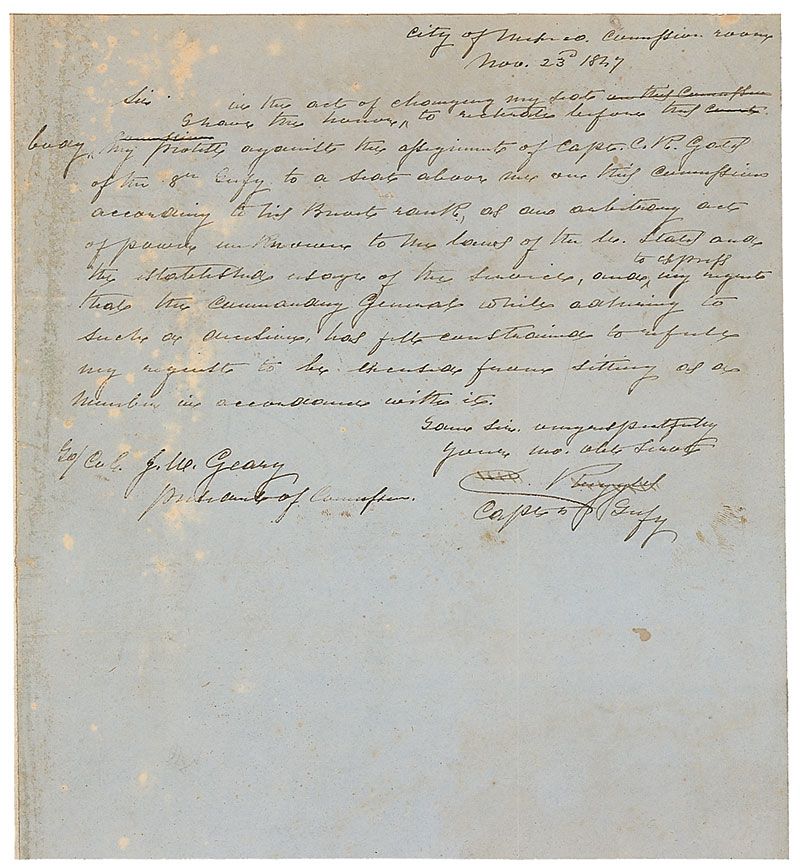 City of Mexico. Commission room
Nov. 23d 1847
Sir in the act of changing my seat on this Commission
I have the honor, to reiterate before this Court
body, Commission my protest against the assignment of Capt. C. R. Gates
of the 8th Infy to a seat above me on this Commission
according to his Brevet rank, as an arbitrary act
of power unknown to the laws of the U. States and
the established usage of the service, and to express my regrets
that the Commanding General while adhering to
such a decision, has felt constrained to refuse
my request to be excused from sitting as a
member in accordance with it.
I am Sir. very respectfully
Your mo. obt Servt
To/ Col. J. W. Geary
President of Commission.
Capt 5 Infy